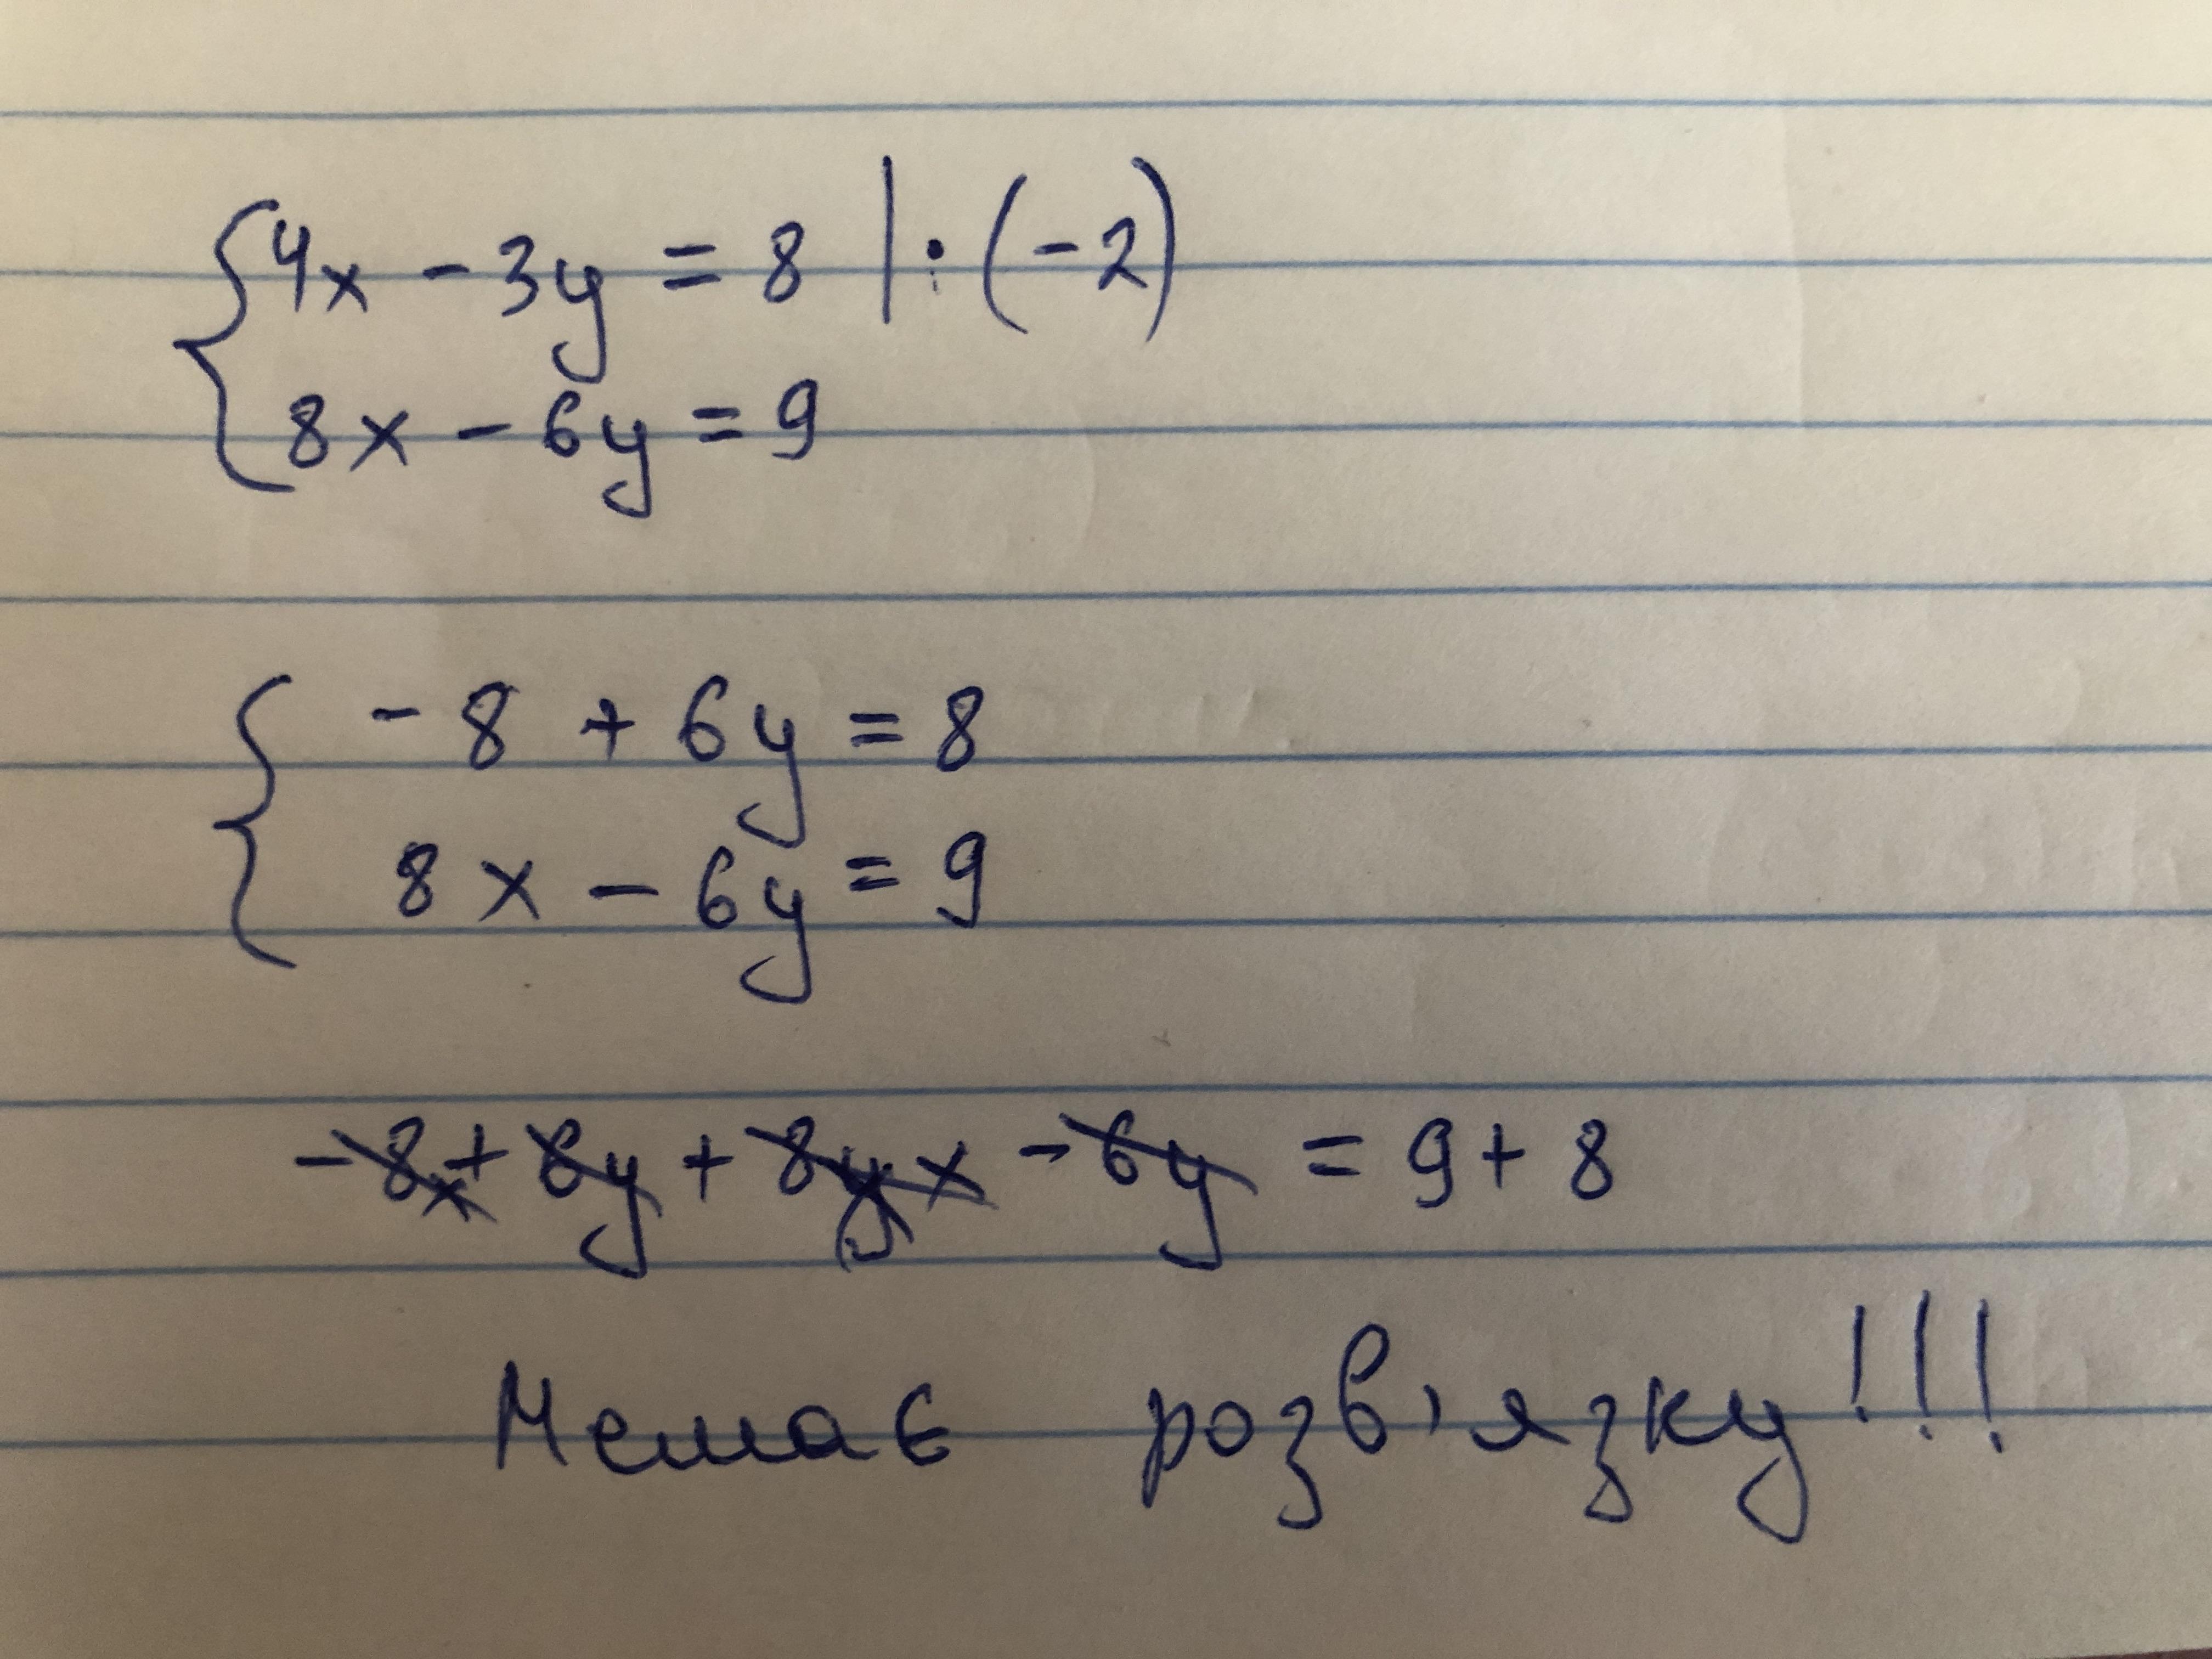 {4x - 3y = 8 | · (-2)
8x - 6y = 9
{-8 + 6y = 8
8x - 6y = 9
-8x + 6y + 8x - 6y = 9 + 8
Немає розв'язку!!!